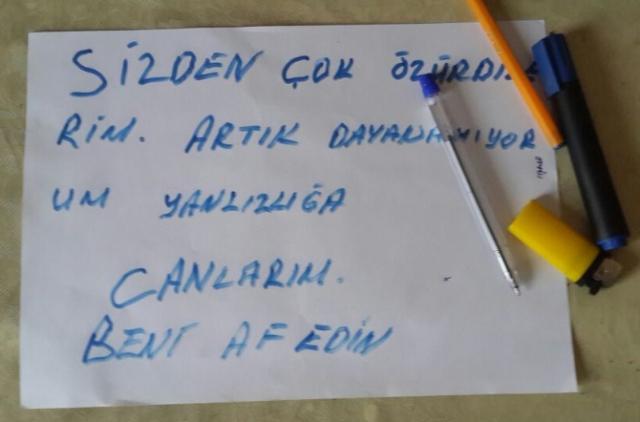 SİZDEN ÇOK ÖZÜRDİLE
RİM. ARTIK DAYANAMIYOR
UM YANLIZLIĞA
CANLARIM.
BENİ AF EDİN